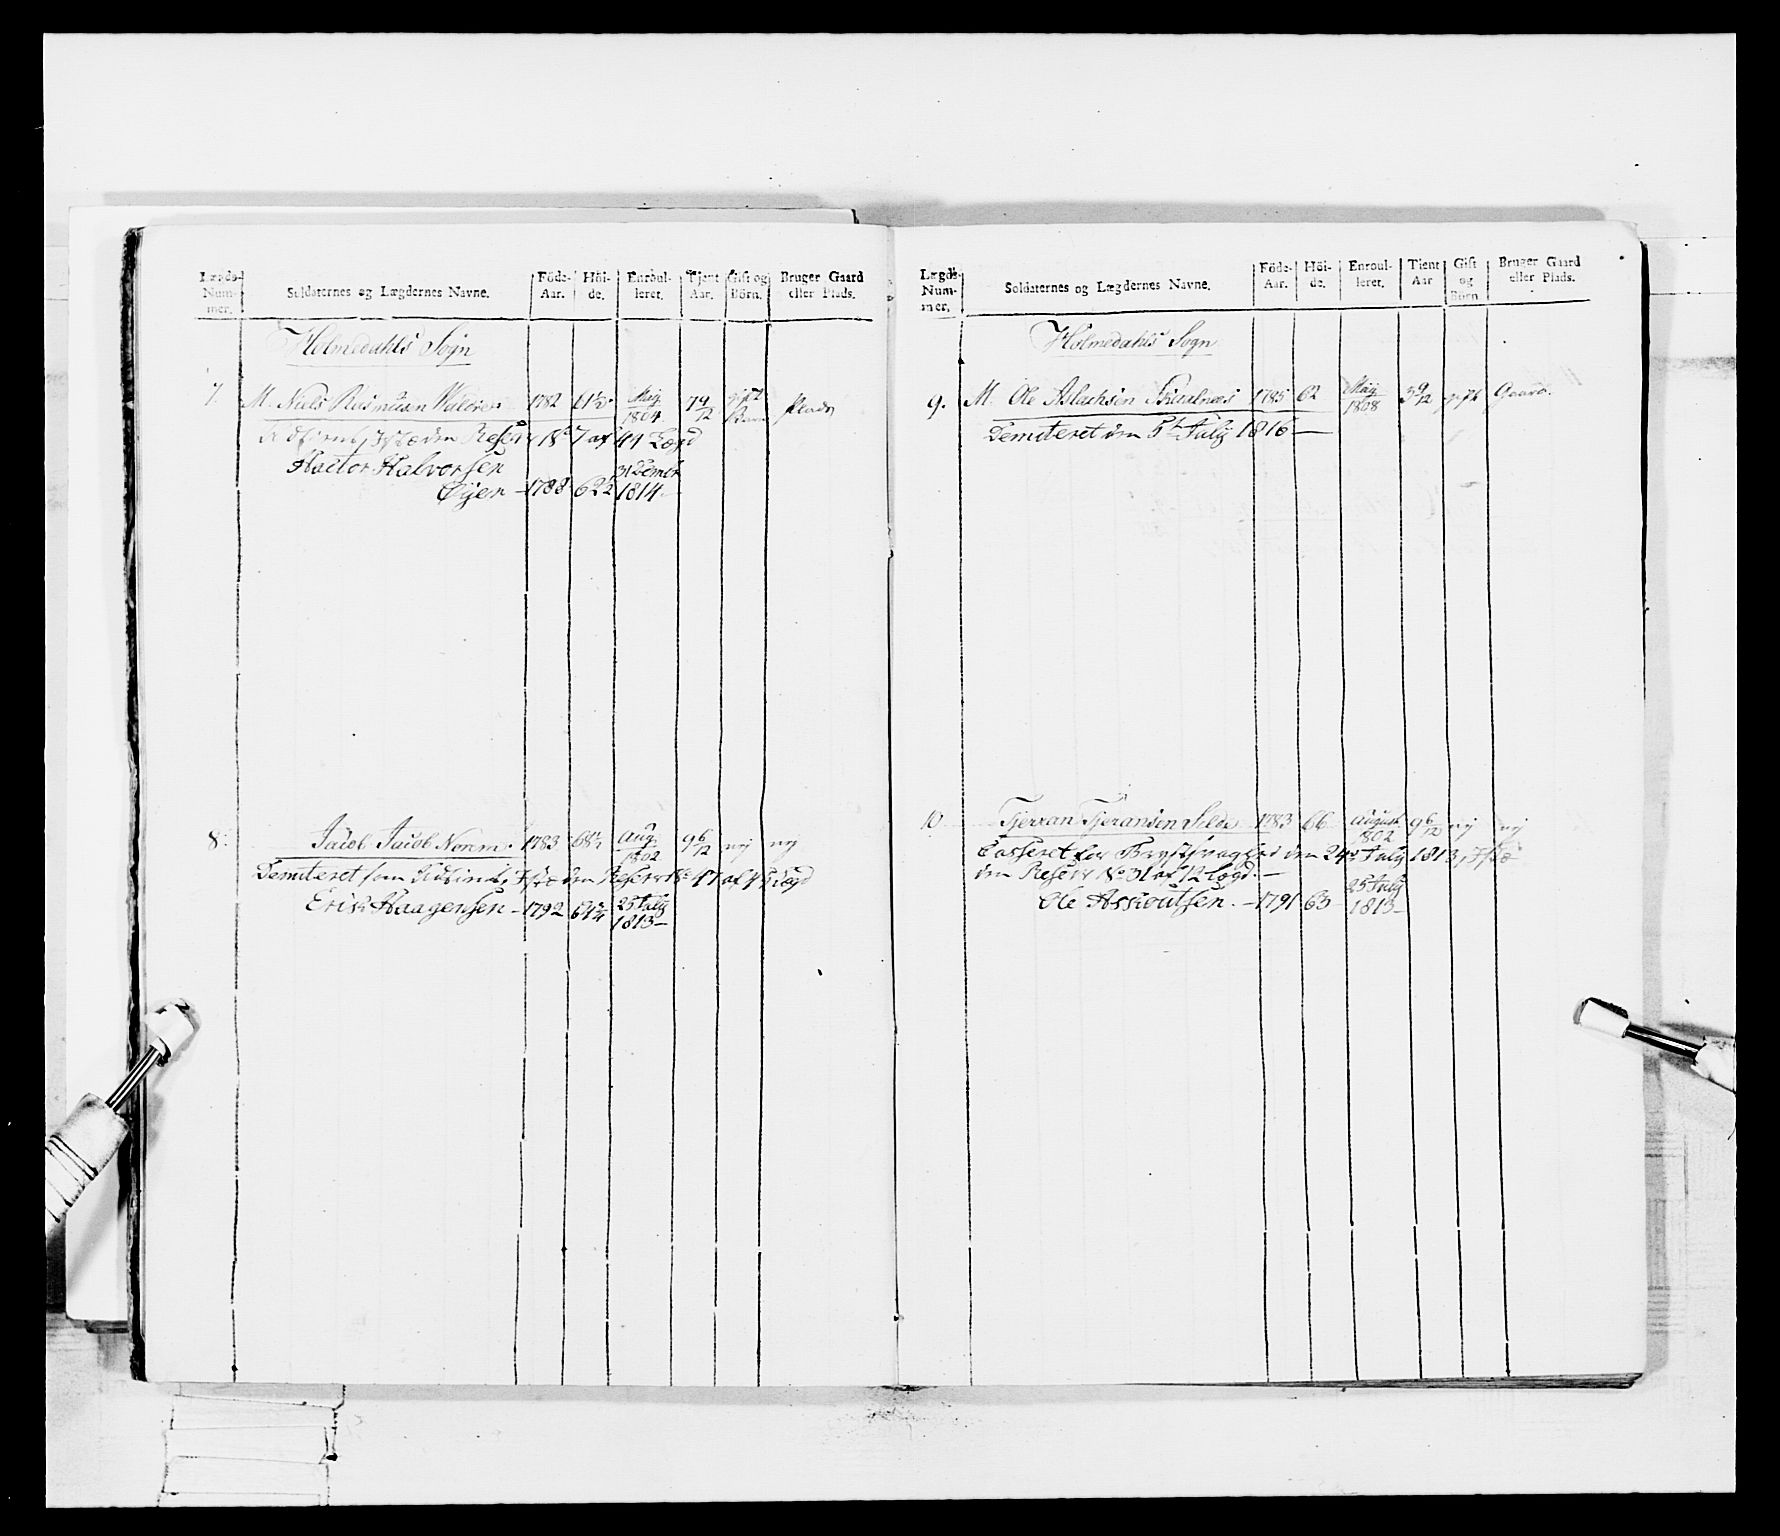 Lægds- Num- mer. Soldaternes og Lægdernes Navne. Föde- Aar. Höi- de. Enroul- leret. Tjent Aar. Gift og Börn. Bruger Gaard eller Plads.
Holmedahls Sogn
7. M. Niels Rasmusen 1782 61½ Maj 1804 7 9/12 gift Plads
den Reserv No 7 af 44 Lægd
Halvorsen
Øyen - 1788 62½ 31 Decmbr 1814 -
8. Jacob Jacob Norem. 1783 68½ Aug. 1802 9 6/12 nej nej
Demiteret som den Reserv No 47 af 45 Lægd
Erich Haagensen - 1792 64¾ 25 July 1813 -
Lægds- Num- mer. Soldaternes og Lægdernes Navne. Föde- Aar. Höi- de. Enroul- leret. Tient Aar Gift og Börn Bruger Gaard eller Plads.
Holmedahls Sogn
9. M. Ole Aslachsen 1785 62 Maj 1808 3 9/12 gift Gaard.
Demiteret den 5te July 1816 -
10 Tjeran Tjeransen Selde 1783 66 August 1802 9 6/12 nej nej
Casseret for Brystsvaghed den 24de July 1813,
den Reserv No 31 af 12 Lægd. -
Ole Asgoutsen. - 1791 63 - 25 July 1813 -